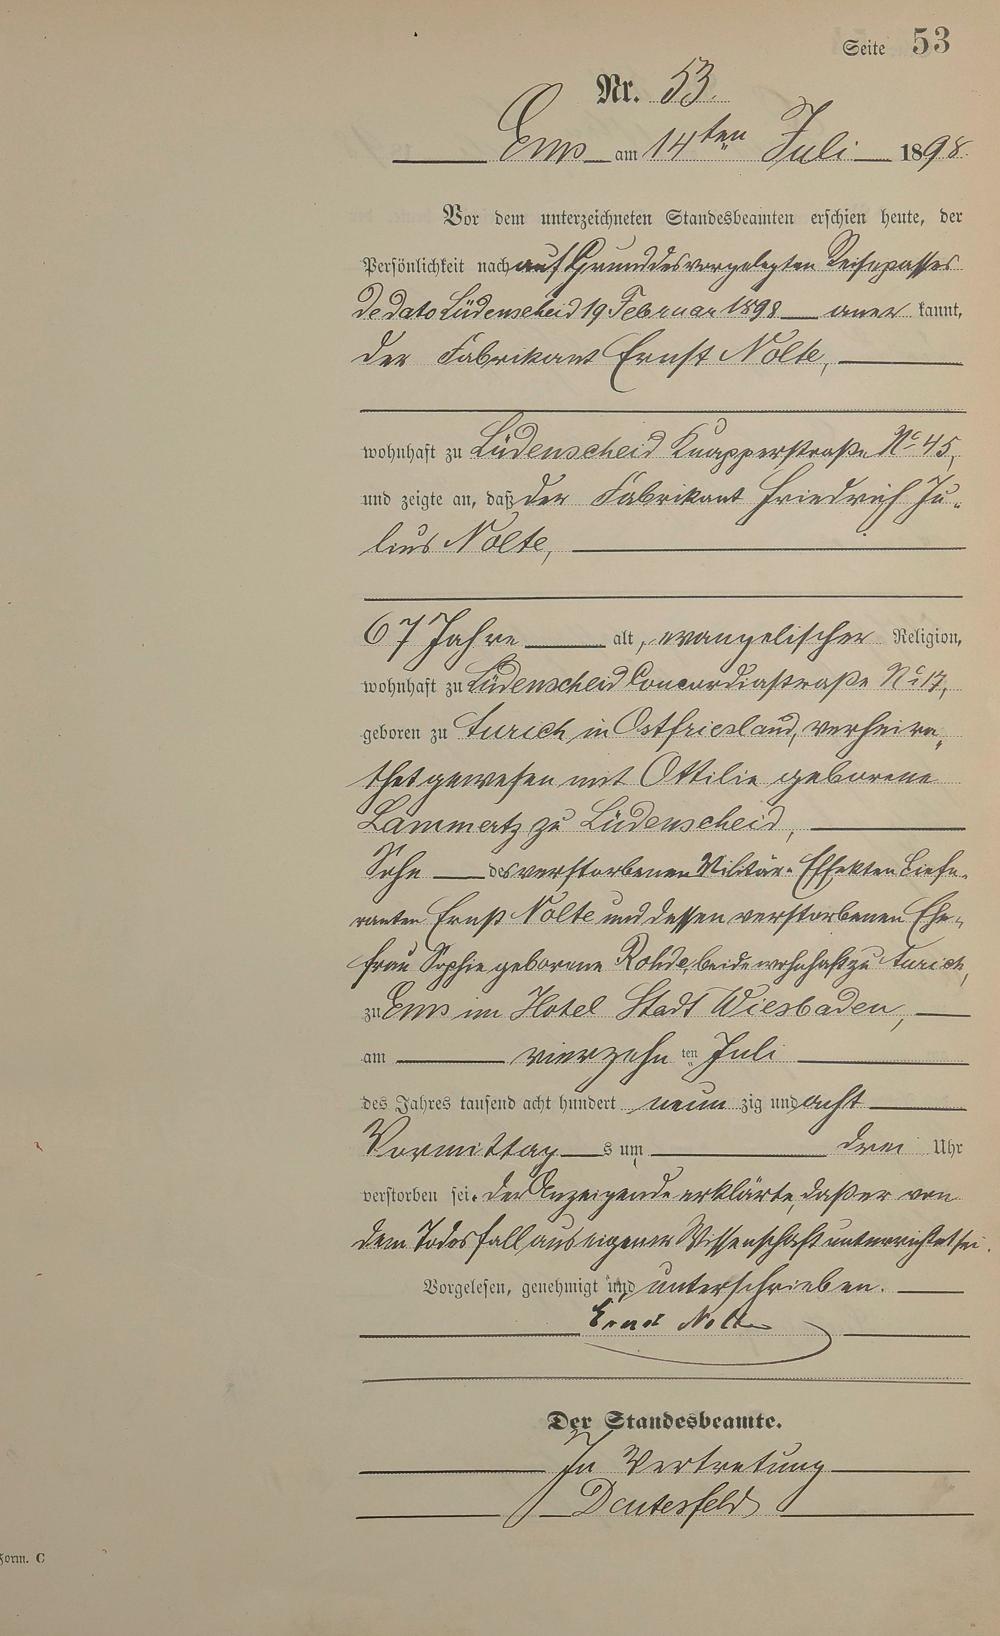 Seite 53
Nr. 53.
Ems am 14ten Juli 1898.
Vor dem unterzeichneten Standesbeamten erschien heute, der
Persönlichkeit nach auf Grund des vorgelegten Reisepasses
de dato Lüdenscheid 19 Februar 1898 aner kannt,
der Fabrikant Ernst Nolte,
wohnhaft zu Lüdenscheid Knapperstraße No 45,
und zeigte an, daß der Fabrikant Friedrich Ju-
lius Nolte,
67 Jahre alt, evangelischer Religion,
wohnhaft zu Lüdenscheid Concordiastraße No 17,
geboren zu Aurich in Ostfriesland, verheira-
thet gewesen mit Ottilie geborene
Lammertz zu Lüdenscheid,
Sohn des verstorbenen Militär-Effekten Liefe-
ranten Ernst Nolte und dessen verstorbenen Ehe-
frau Sophie geborene Rohde, beide wohnhaft zu Aurich,
zu Ems im Hotel Stadt Wiesbaden,
am vierzehn ten Juli
des Jahres tausend acht hundert neun zig und acht
Vormittag s um drei Uhr
verstorben sei. Der Anzeigende erklärte, daß er von
dem Todesfall aus eigener Wissenschaft unterrichtet sei.
Vorgelesen, genehmigt und unterschrieben.
Ernst Nolte
Der Standesbeamte.
In Vertretung
Form. C